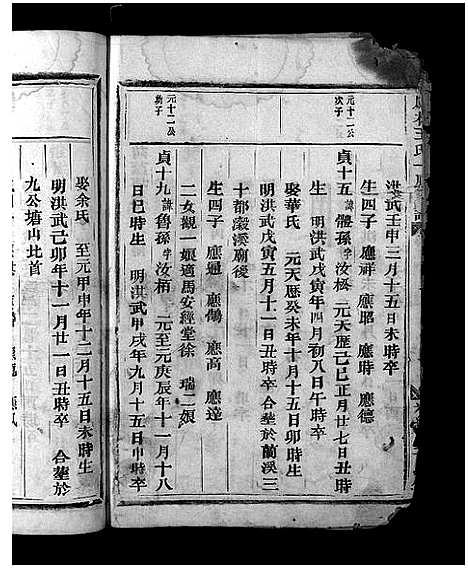 洪武壬申三月十五日未時卒
生四子　應祥　應耶　應時　應德
元十二公次子
貞十五諱體孫字汝極　元天歷己巳正月廿七日丑時
生　明洪武戊寅年四月初八日午時卒
娶華氏　元天歷癸未年十月十五日卯時生
明洪武戊寅五月十一日丑時卒　合塟於蘭溪三
十都㲄溪廟後
生四子　應遇　應傷　應高　應達
二女觀一娘適馬安經堂徐　瑞二娘
元十二公幼子
貞十九諱魯孫字汝柄　元至元庚辰年十一月十八
日巳時生　明洪武甲戌年九月十五日申時卒
娶余氏　至元甲申年十二月十五日未時生
明洪武己卯年十一月廿一日丑時卒　合塟於
九公塘山北首